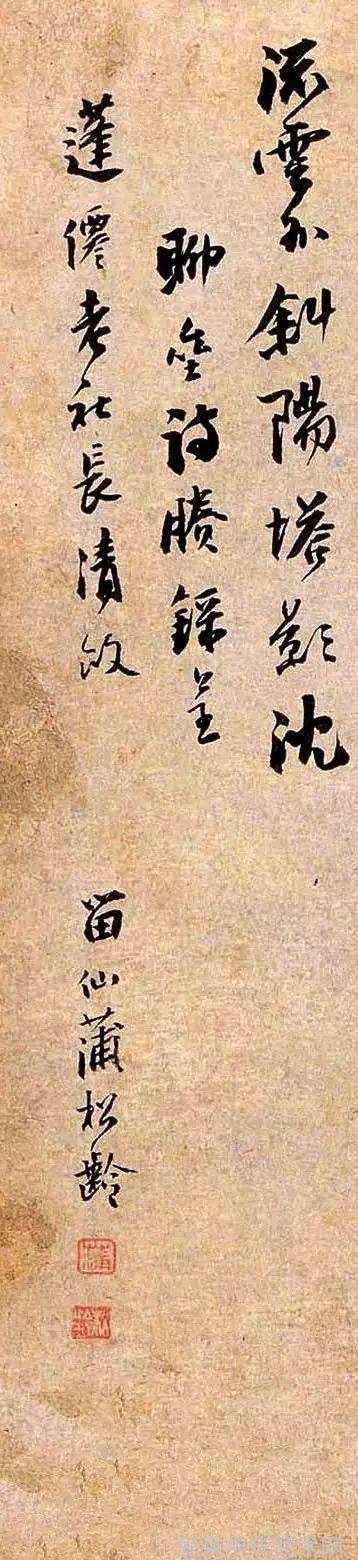 流雲外斜陽塔影沈
聊齋詩賸錄呈
蓬僊老社長清政
留仙蒲松齡